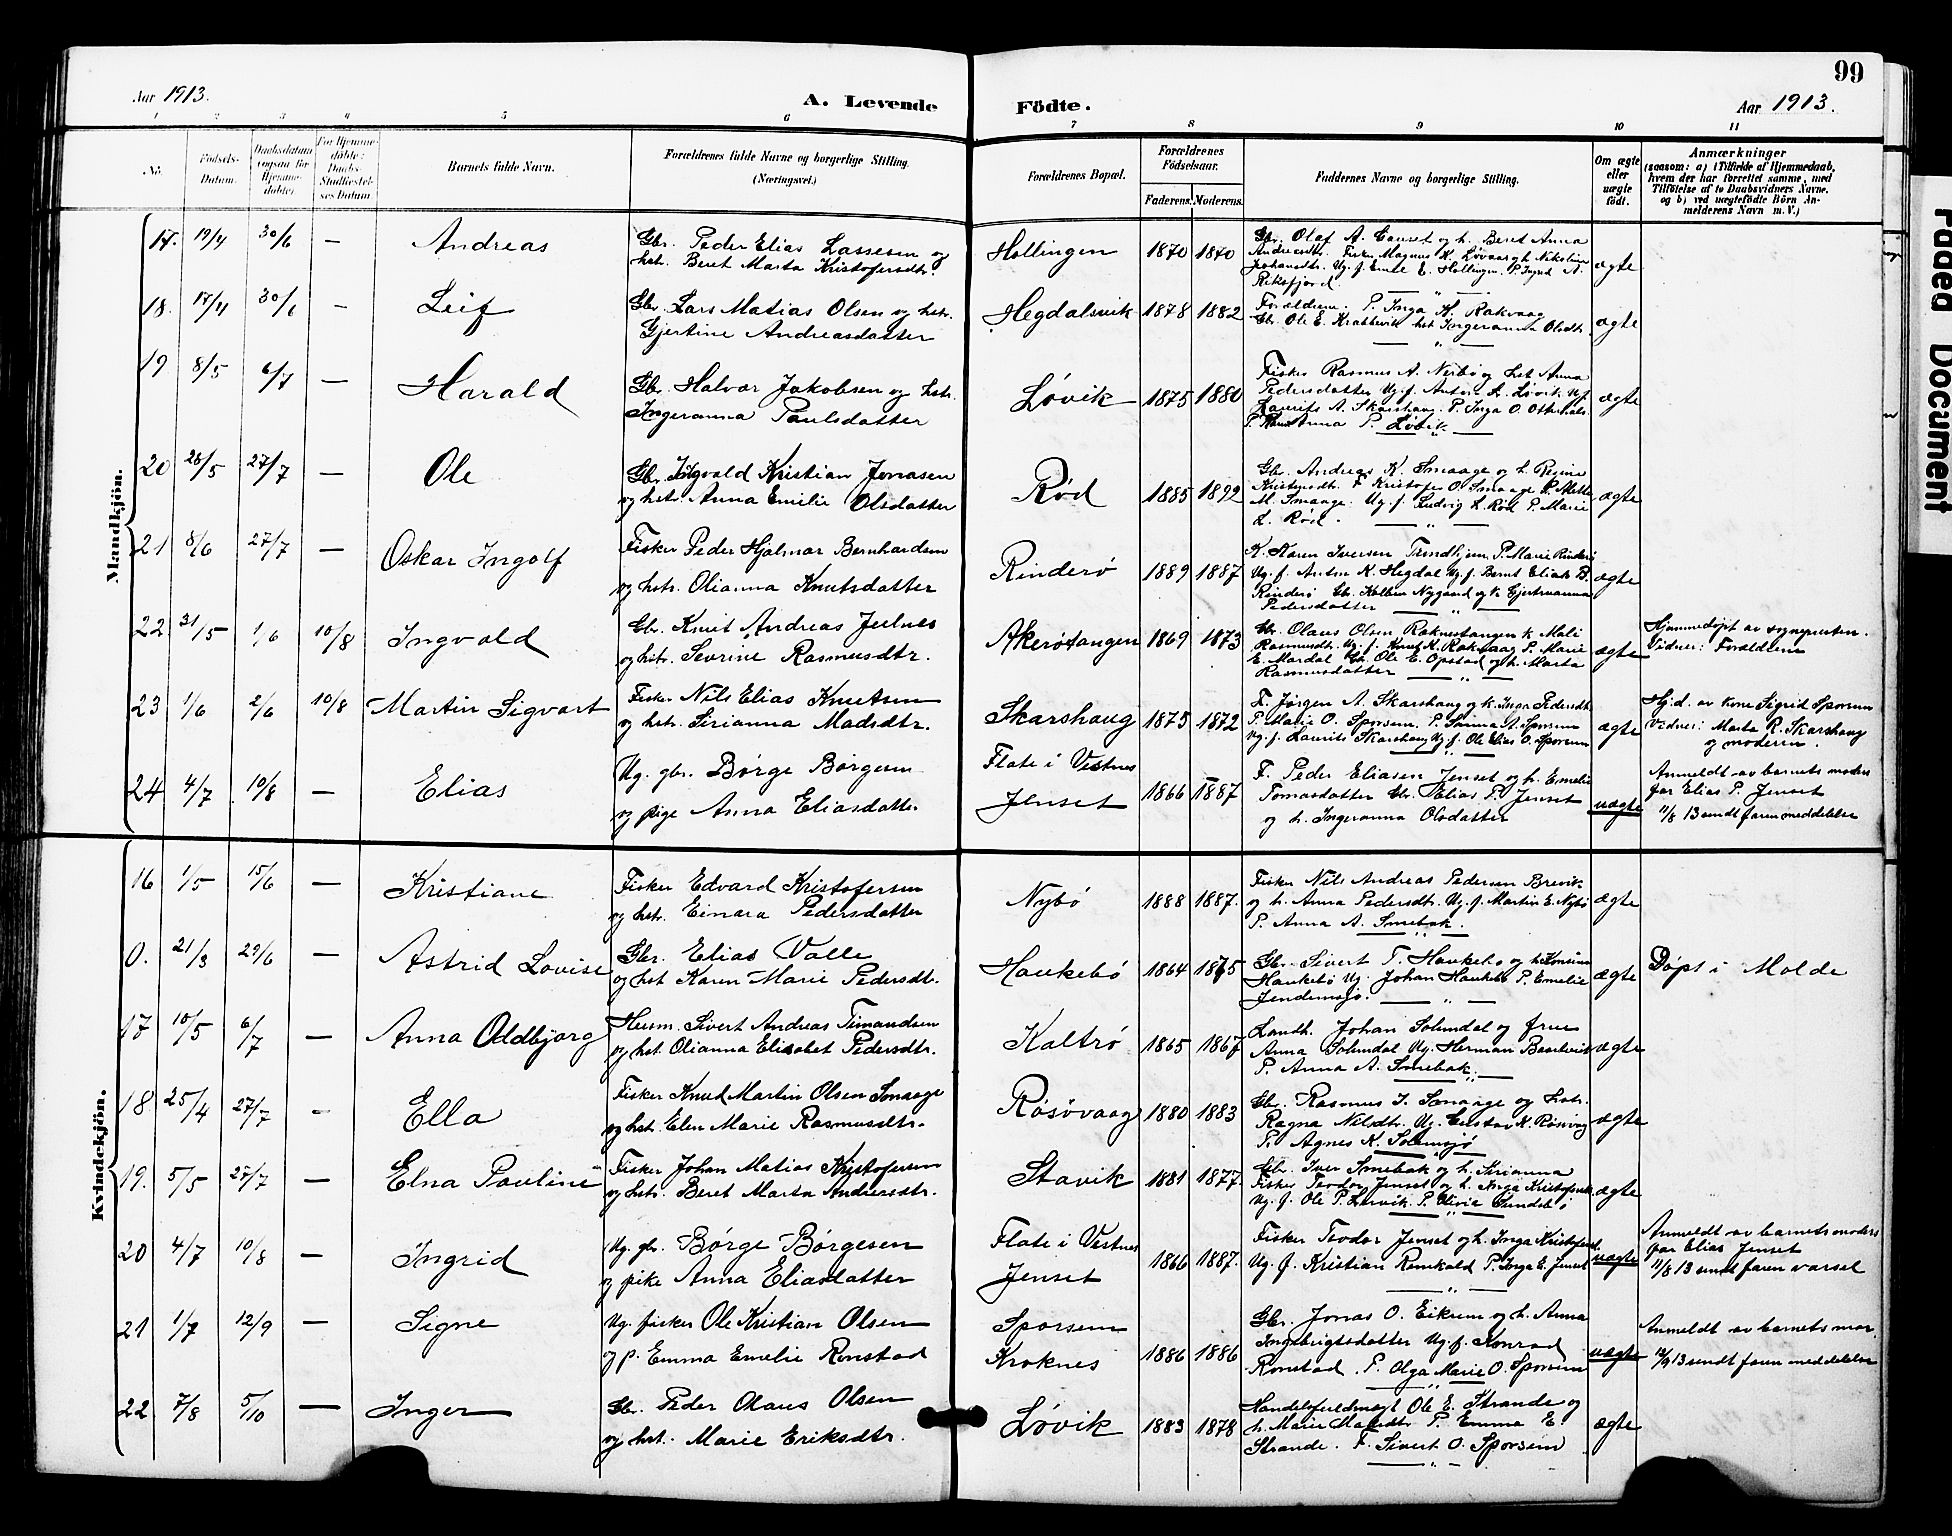 99
Aar 1913.
A. Levende
Födte.
Aar 1913.
1 2 3 4 5 6 7 8 9 10 11
No.
Födsels-
Datum.
Daabsdatum
(ogsaa for
Hjemme-
döbte).
For Hjemme-
döbte:
Daabs-
Stadfæstel-
ses Datum.
Barnets fulde Navn.
Forældrenes fulde Navne og borgerlige Stilling.
(Næringsvei.)
Forældrenes Bopæl.
Forældrenes
Födselsaar.
Faderens. Moderens.
Faddernes Navne og borgerlige Stilling.
Om ægte
eller
uægte
födt.
Anmærkninger
(saasom: a) i Tilfælde af Hjemmedaab,
hvem der har forrettet samme, med
Tilföielse af to Daabsvidners Navne.
og b) ved uægtefödte Börn An-
melderens Navn m. V.)
Faded Document
Mandkjön.
17. 19/4 30/6 — Andreas
Gbr. Peder Elias Lassesen og
hstr. Beret Marta Kristofersdtr.
Hollingen 1870 1870
Gbr. Olaf A. Gauset og h. Beret Anna
Andersdtr. Fisker Magnus K. Løvaag h. Nikoline
Johansdtr. Ug. f. Emil E. Hollingen. P. Ingrid A.
Riksfjord.
ægte
18. 17/4 30/6 — Leif
Gbr. Lars Matias Olsen og hstr.
Gjertine Andreasdatter
Hegdalsvik 1878 1882
Forældrene. P. Inga K. Rakvaag
Gbr. Ole E. Krabbevik hst. Ingeranna Olsdtr.
ægte
19 8/5 6/7 — Harald
Gbr. Halvar Jakobsen og hstr.
Ingeranna Paulsdatter
Løvik 1875 1880
Fisker Rasmus A. Nerbø og hst. Anna
Pedersdatter Ug. f. Anton L. Løvik Ug. f.
Laurits A. Skarshaug. P. Inga O.
P. Anna P. Løvik
ægte
20 28/5 27/7 — Ole
Gbr. Ingvald Kristian Jonasen
og hstr. Anna Emilie Olsdatter
Rød 1885 1892
Gbr. Andreas K. Smaage og h. Regine
F. Kristofer O. Smaage P. Mette
M. Smaage. Ug. f. Ludvig L. Rød P. Marie
L. Rød.
ægte
21 8/6 27/7 — Oskar Ingolf
Fisker Peder Hjalmar Bernhardsen
og hstr. Olianna Knutsdatter
Rinderø 1889 1887
K. Karen Iversen Trondhjem. P. Marie Rinderø
Ug. f. Anton K. Hegdal Ug. f. Bernt Eliak B.
Rinderø Gbr. Kolbein Nygaard og k. Gjertruanna
Pedersdatter
ægte
22 31/5 1/6 10/8 Ingvald
Gbr. Knut Andreas Julnes
og hstr. Sevrine Rasmusdtr.
Akerøtangen 1869 1873
Gbr. Olaus Olsen Raknestangen k. Mali
Rasmusdtr. Ug. f. Knut K. Rakvaag P. Marie
E. Mardal Gbr. Ole E. Opstad og h. Marta
Rasmusdatter
ægte
Hjemmedøpt av sognepresten.
Vidner: Forældrene
23 1/6 2/6 10/8 Martin Sigvart
Fisker Nils Elias Knutsen
og hstr. Sirianna Madsdtr.
Skarshaug 1875 1872
F. Jørgen A. Skarshaug og k. Inga Pedersdtr.
P. Marie O. Sporsem. P. Sanna A. Sporsem
Ug. f. Laurits Skarshaug Ug. f. Ole Elias O. Sporsem
ægte
Hjd. av kone Sigrid Sporsem
Vidner: Marta R. Skarshaug
og moderen.
24 4/7 10/8 — Elias
Ug. gbr. Børge Børgesen
og pige Anna Eliasdatter
Flate i Vestnes
Jenset 1866 1887
F. Peder Eliasen Jenset og h. Emelie
Tomasdatter Gbr. Elias P. Jenset
og h. Ingeranna Olsdatter
uægte
Anmeldt av barnets moders
far Elias P. Jenset
11/8 13 sendt faren meddelelse
Kvindekjön.
16 1/5 15/6 — Kristiane
Fisker Edvard Kristofersen
og hstr. Einara Pedersdatter
Nybø 1888 1887.
Fisker Nils Andreas Pedersen Brevik
og h. Anna Pedersdtr. Ug. f. Martin E. Nybø
P. Anna A. Smebak.
ægte
0. 21/3 29/6 — Astrid Lovise
Gbr. Elias Valle
og hst Karen Marie Pedersdtr.
Haukebø 1864 1875
Gbr. Sivert T. Haukebø og h.
Haukebø Ug. Johan Haukebø P. Emelie
Jendemsjø.
ægte
Døpt i Molde
17 10/5 6/7 — Anna Oddbjørg
Husm. Sivert Andreas Timandsen
og hst. Olianna Elisabet Pedersdtr.
Kaltrø 1865 1867
Landh. Johan Solemdal og frue
Anna Solemdal Ug. Herman
P. Anna A. Smebak.
ægte
18 25/4 27/7 — Ella
Fisker Knud Martin Olsen Smaage
og hstr. Elen Marie Rasmusdtr.
Røsøvaag 1880 1883
Gbr. Rasmus I. Smaage og hstr.
Ragna Nilsdtr. Ug. Gustav K. Røsøvag
P. Agnes K. Solemsjø
ægte
19. 5/5 27/7 — Elna Pauline
Fisker Johan Matias Kristofersen
og hstr. Beret Marta Andersdtr.
Stavik 1881 1877.
Gbr. Iver Smebak og h. Sirianna
Fisker Teodor Jenset og h. Inga Kristofersdtr.
Ug. f. Ole P. Lervik. P. Olivia Sundsbø
ægte
20 4/7 10/8 — Ingrid
Ug. gbr. Børge Børgesen
og pike Anna Eliasdatter
Flate i Vestnes
Jenset 1866 1887.
Fisker Teodor Jenset og h. Inga Kristofersd.
Ug. f. Kristian Remkald P. Inga E. Jenset
uægte
Anmeldt av barnets moders
far Elias Jenset
11/8 13 sendt faren varsel
21 1/7 12/9 — Signe
Ug. fisker Ole Kristian Olsen
og p. Emma Emelie Ronstad
Sporsem
Kroknes 1886 1886
Gbr. Jonas O. Eikrem og h. Anna
Ingebrigtsdatter Ug. f. Konrad
Ronstad. P. Olga Marie O. Sporsem
uægte
Anmeldt av barnets mor.
12/9 13 sendt faren meddelelse
22 7/8 5/10 — Inger
Gbr. Peder Olaus Olsen
og hst. Marie Eriksdtr.
Løvik 1883 1878
Handelsfuldmægt. Ole E. Strande og
h. Marie P. Emma E
Strande. F. Sivert O. Sporsem
ægte